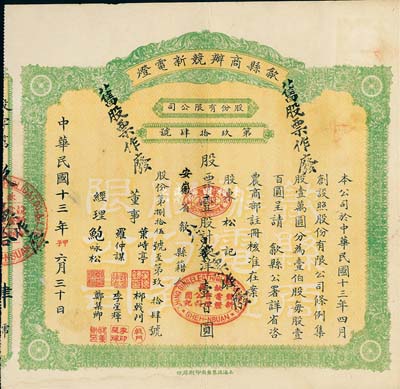 歙縣商辦競新電燈
股份有限公司
第玖拾肆號
舊股票作廢
舊股票作廢
本公司於中華民國十三年四月
創設照股份有限公司條例集
股壹萬圓分為壹伯股每股壹
百圓呈請 歙縣公署詳省咨
農商部註冊核准在案
股東 松記
安徽省歙縣籍
股票壹股計銀洋壹百圓
股份第捌拾伍號至第玖拾肆號
董事
葉峙亭
羅仲謀
柳幹川
李景輝
鄭墓卿
經理 鮑咏松
中華民國十三年 六月三十日
SHEH-HSUAN